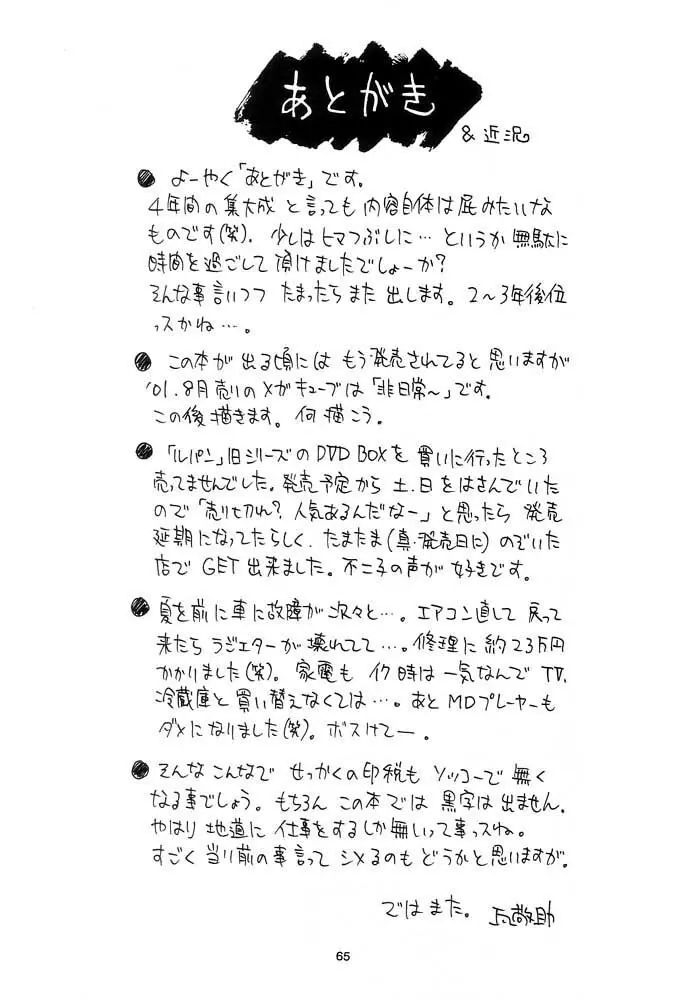 あとがき
&近況
● よーやく「あとがき」です。
4年間の集大成 と言っても 内容自体は屁みたいな
ものです(笑). 少しはヒマつぶしに… というか 無駄に
時間を過ごして頂けましたでしょーか?
そんな事言いつつ たまったら また 出します。2〜3年後位
っスかね…。
● この本が 出る頃には もう発売されてると思いますが
'01.8月売りのメガキューブは「非日常〜」です。
この後描きます。何描こう。
● 「ルパン」旧シリーズのDVD BOXを 買いに行ったところ
売ってませんでした。発売予定から 土.日をはさんでいた
ので「売り切れ? 人気あるんだなー」と思ったら 発売
延期になってたらしく. たまたま(真・発売日に) のぞいた
店で GET 出来ました。不二子の声が 好きです。
● 夏を前に車に故障が次々と…。エアコン直して 戻って
来たら ラジエターが 壊れてて…。修理に 約23万円
かかりました(笑)。家電も イク時は 一気なんで TV.
冷蔵庫と 買い替えなくては…。あと MDプレーヤーも
ダメになりました(笑)。ボスけてー。
● そんな こんなで せっかくの印税も ソッコーで 無く
なる事でしょう。もちろん この本では 黒字は 出ません.
やはり 地道に 仕事をするしか無いって事っスね。
すごく 当り前の事言って シメるのも どうかと思いますが。
では また。
65